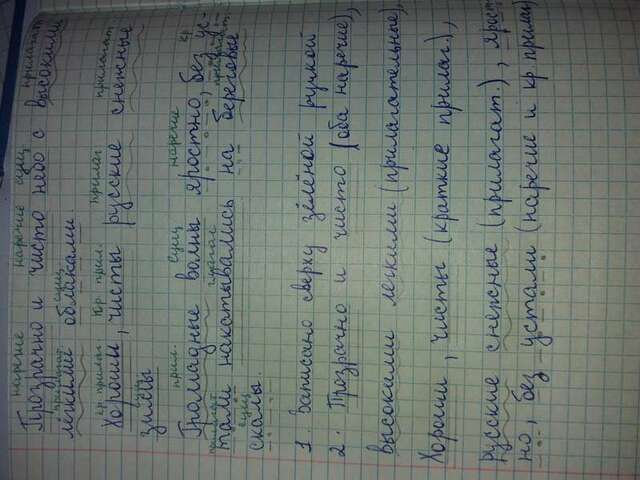 наречие наречие сущ прилагат
Прозрачно и чисто небо с высокими
прилагат. сущ
легкими облаками.
кр прилаг кр прил. прилаг прилагат
Хороши, чисты русские снежные
сущ
зимы
прил. сущ наречие кр
Громадные волны яростно, без ус-
прилагат глагол
тали накатывались на береговые
сущ
скалы.
1. Записано сверху зелёной ручкой
2. Прозрачно и чисто (оба наречие),
высокими легкими (прилагательные),
Хороши, чисты (краткие прилаг.),
русские снежные (прилагат.), ярост
но, без устали (наречие и кр. прилаг